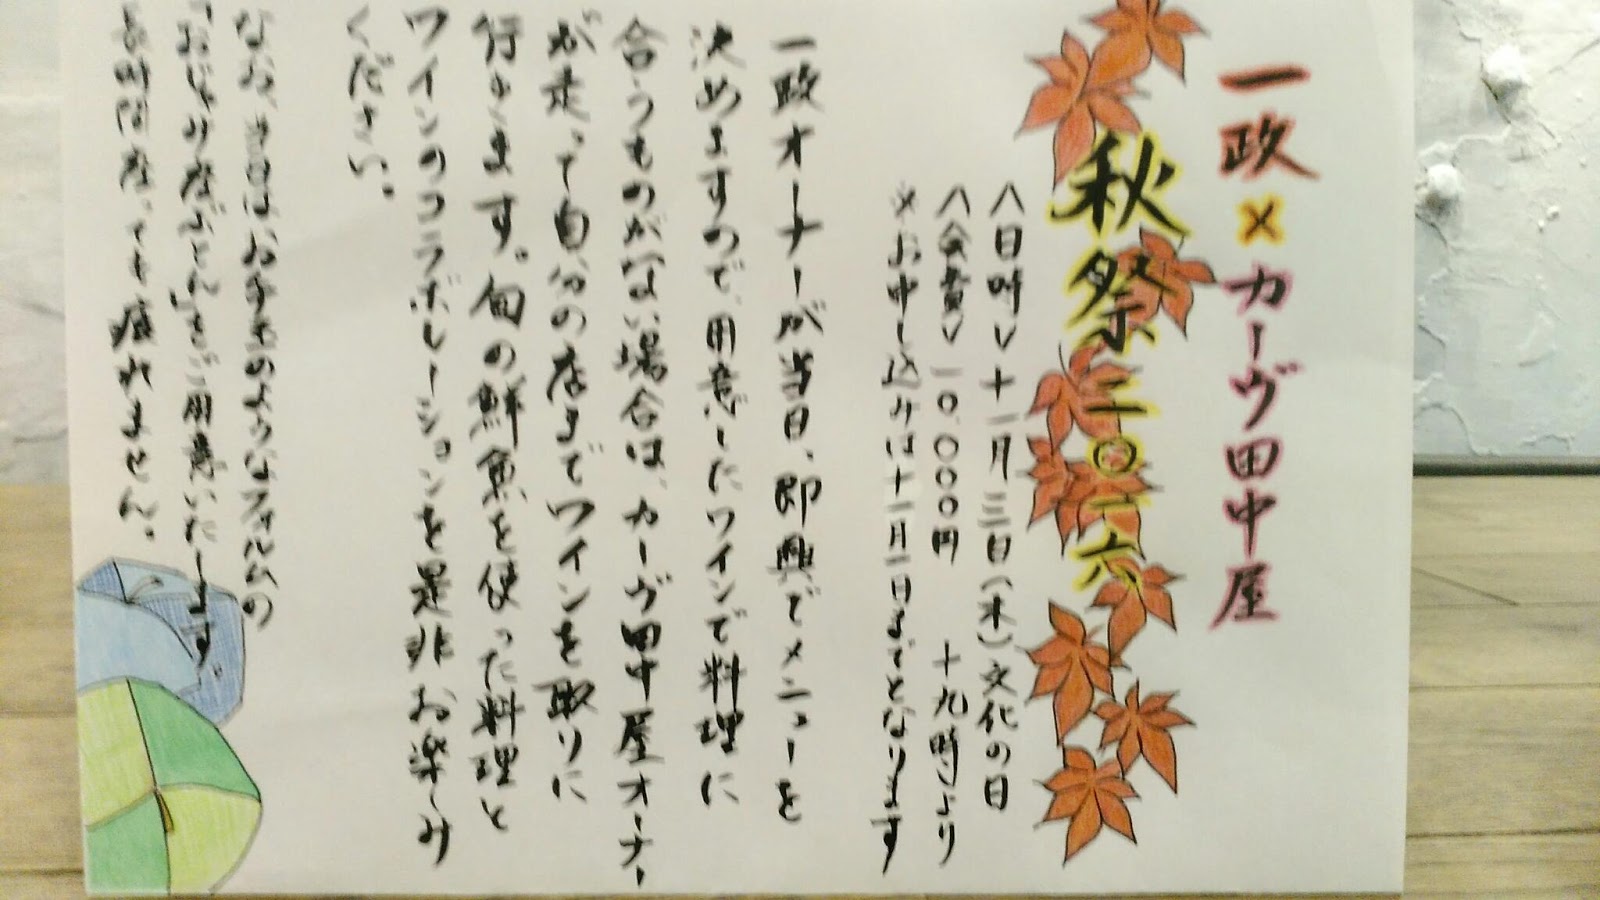 一政×カーヴ田中屋
秋祭二〇一六
〈日時〉十一月三日(木)文化の日
〈会費〉一〇、〇〇〇円 十九時より
※お申し込みは十一月一日までとなります
一政オーナーが当日、即興でメニューを
決めますので、用意したワインで料理に
合うものがない場合は、カーヴ田中屋オーナー
が走って自分の店までワインを取りに
行きます。旬の鮮魚を使った料理と
ワインのコラボレーションを是非お楽しみ
ください。
なお、当日は、お手玉のようなフォルムの
「おじゃみ座ぶとん」をご用意いたします。
長時間座っても疲れません。